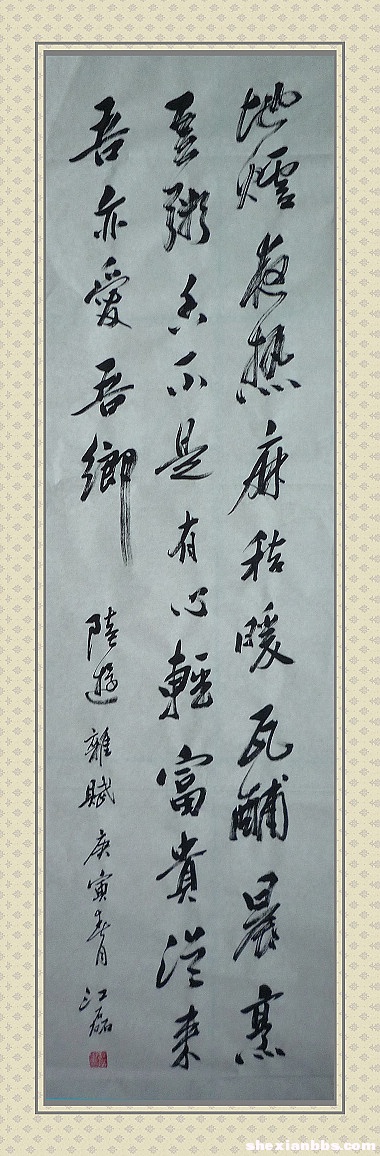 地爐夜热麻秸暖瓦鬴晨烹
豆粥香不是有心輕富貴從来
吾亦愛吾鄉
陸游雜賦 庚寅春月 江磊
shexianbbs.com